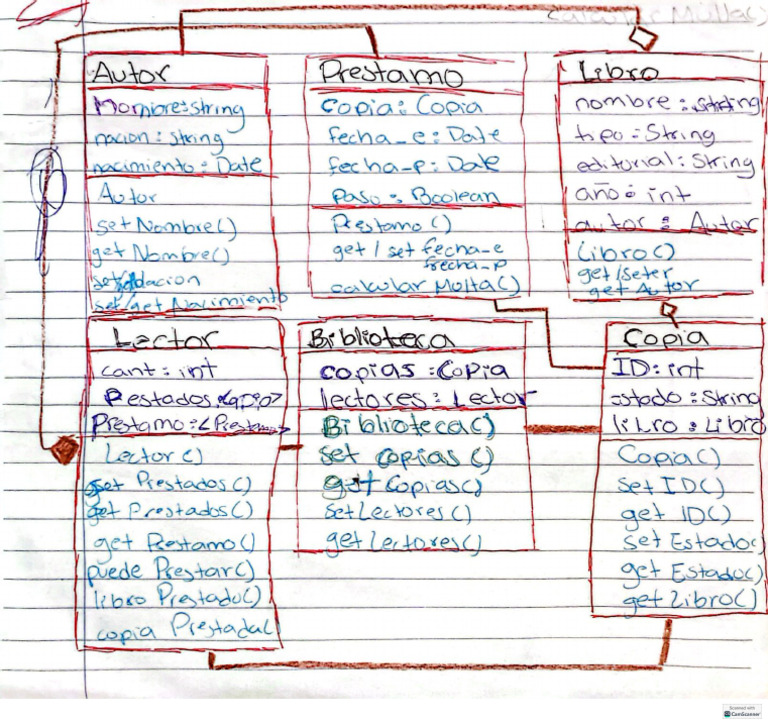 calcular Multa()
Autor
Nombre: String
nacion: String
nacimiento: Date
Autor
setNombre()
getNombre()
set/get Nacimiento
Prestamo
copia: Copia
fecha_e: Date
fecha_p: Date
Paso: Boolean
Prestamo()
get / set fecha-e
fecha-p
calcular Multa()
Libro
nombre: String
tipo: String
editorial: String
año: int
autor: Autor
Libro()
get/seter
get Autor
Lector
cant: int
Prestamo:
Lector()
set Prestados()
get Prestados()
get Prestamo()
puede Prestar()
libro Prestado()
copia Prestada(
Biblioteca
copias: Copia
lectores: Lector
Biblioteca()
set copias()
get Copias()
setLectores()
getLectores()
Copia
ID: int
estado: String
libro: Libro
Copia()
Set ID()
get ID()
Set Estado()
get Estado()
get Libro()
Scanned with
CamScanner